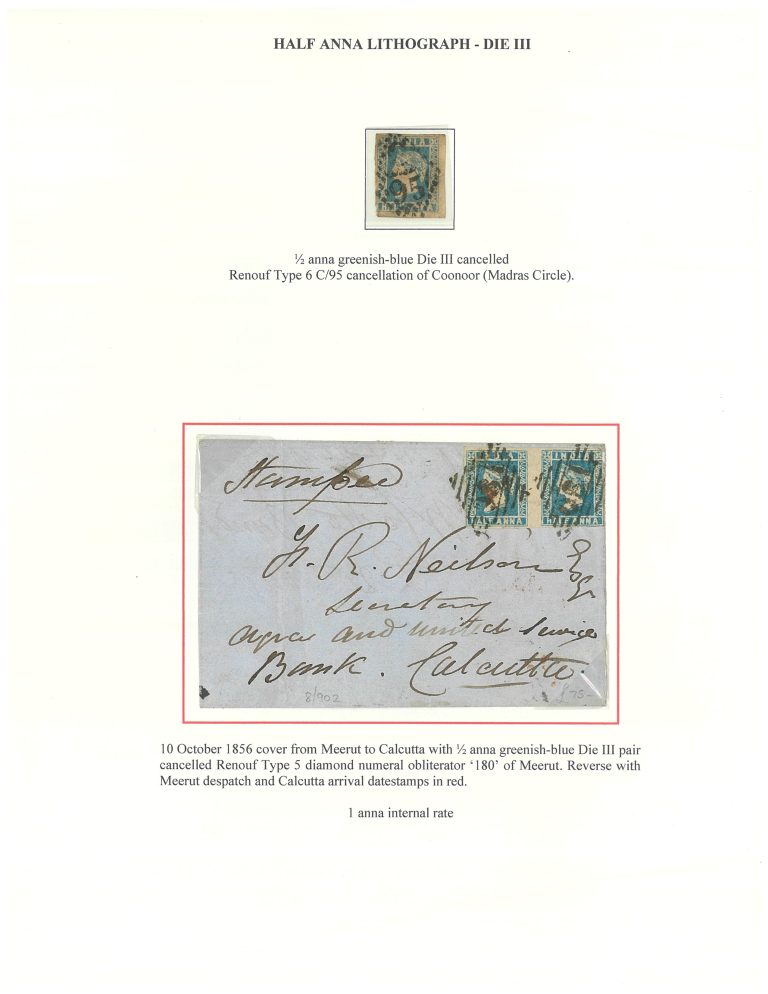 HALF ANNA LITHOGRAPH - DIE III
INDIA
95
½ anna greenish-blue Die III cancelled
Renouf Type 6 C/95 cancellation of Coonoor (Madras Circle).
Stampee
INDIA
HALF ANNA
HALF ANNA
R. Neilson Esqr
Secretary
Agra and united Service
Bank. Calcutta.
8/902
£75-
10 October 1856 cover from Meerut to Calcutta with ½ anna greenish-blue Die III pair
cancelled Renouf Type 5 diamond numeral obliterator ‘180’ of Meerut. Reverse with
Meerut despatch and Calcutta arrival datestamps in red.
1 anna internal rate